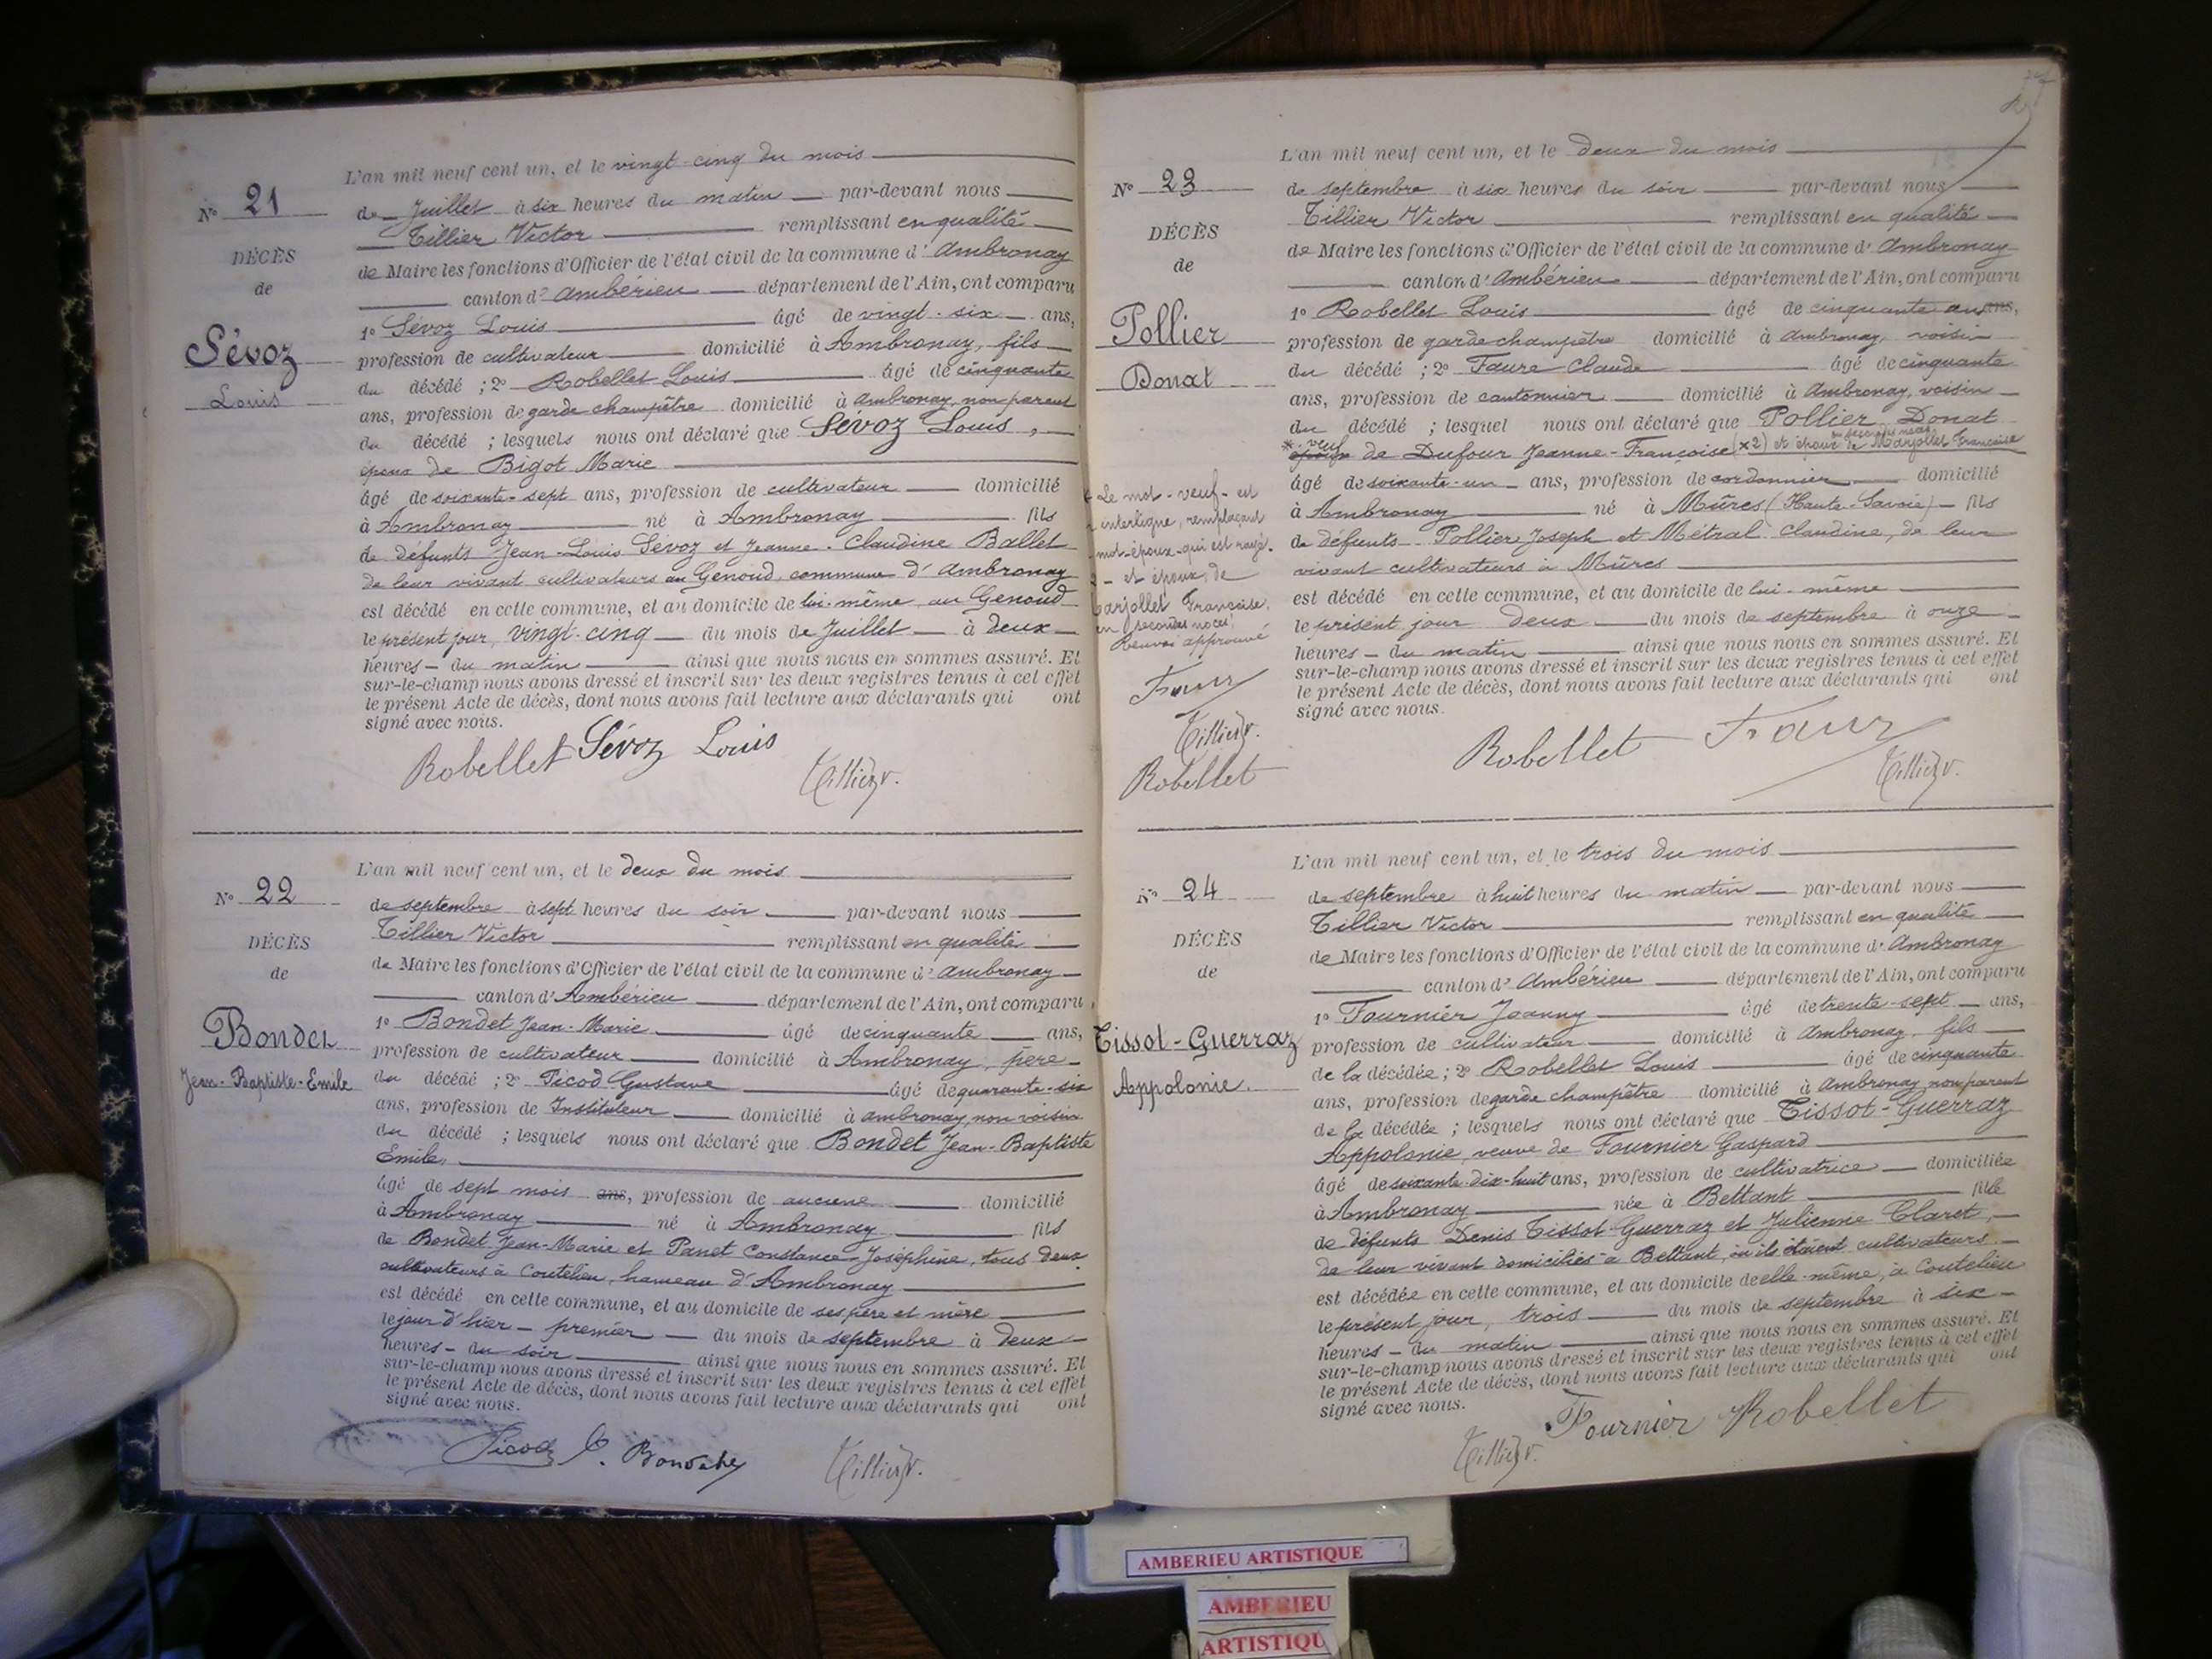 L'an mil neuf cent un, et le vingt-cinq du mois
N° 21
de Juillet à six heures du matin par-devant nous
Tillier Victor remplissant en qualité
DÉCÈS
de Maire les fonctions d'Officier de l'état civil de la commune d'Ambronay
de
canton d'Ambérieu département de l'Ain, ont comparu
1° Sévoz Louis âgé de vingt-six ans,
Sévoz
profession de cultivateur domicilié à Ambronay, fils
Louis
du décédé ; 2° Robellet Louis âgé de cinquante
ans, profession de garde champêtre domicilié à Ambronay, non parent
du décédé ; lesquels nous ont déclaré que Sévoz Louis,
époux de Bigot Marie
âgé de soixante-sept ans, profession de cultivateur domicilié
à Ambronay né à Ambronay fils
de défunts Jean-Louis Sévoz et Jeanne-Claudine Ballet
de leur vivant cultivateurs au Genoud, commune d'Ambronay
est décédé en cette commune, et au domicile de lui-même au Genoud
le présent jour, vingt-cinq du mois de Juillet à deux
heures - du matin ainsi que nous nous en sommes assuré. Et
sur-le-champ nous avons dressé et inscrit sur les deux registres tenus à cet effet
le présent Acte de décès, dont nous avons fait lecture aux déclarants qui ont
signé avec nous.
Robellet Sévoz Louis
Tillier v.
L'an mil neuf cent un, et le deux du mois
N° 22
de septembre à sept heures du soir par-devant nous
Tillier Victor remplissant en qualité
DÉCÈS
de Maire les fonctions d'Officier de l'état civil de la commune d'Ambronay
de
canton d'Ambérieu département de l'Ain, ont comparu
1° Bondet Jean-Marie âgé de cinquante ans,
Bondet
profession de cultivateur domicilié à Ambronay, père
Jean-Baptiste-Emile
du décédé ; 2° Picod Gustave âgé de quarante-six
ans, profession de Instituteur domicilié à Ambronay, non voisin
du décédé ; lesquels nous ont déclaré que Bondet Jean-Baptiste
Emile,
âgé de sept mois ans, profession de aucune domicilié
à Ambronay né à Ambronay fils
de Bondet Jean-Marie et Panet Constance-Joséphine, tous deux
cultivateurs à Coutelieu, hameau d'Ambronay
est décédé en cette commune, et au domicile de ses père et mère
le jour d'hier - premier du mois de septembre à deux
heures - du soir ainsi que nous nous en sommes assuré. Et
sur-le-champ nous avons dressé et inscrit sur les deux registres tenus à cet effet
le présent Acte de décès, dont nous avons fait lecture aux déclarants qui ont
signé avec nous.
Picod G. Tillier v.
L'an mil neuf cent un, et le deux du mois
N° 23
de septembre à six heures du soir par-devant nous
Tillier Victor remplissant en qualité
DÉCÈS
de Maire les fonctions d'Officier de l'état civil de la commune d'Ambronay
de
canton d'Ambérieu département de l'Ain, ont comparu
1° Robellet Louis âgé de cinquante ans ans,
Pollier
profession de garde champêtre domicilié à Ambronay, voisin
Donat
du décédé ; 2° Faure Claude âgé de cinquante
ans, profession de cantonnier domicilié à Ambronay, voisin
du décédé ; lesquel nous ont déclaré que Pollier Donat
* veuf
époux de Dufour Jeanne-Françoise (x2) et époux en secondes noces de Marjollet Françoise
âgé de soixante-un ans, profession de cordonnier domicilié
à Ambronay né à Mûres (Haute-Savoie) fils
de défunts Pollier Joseph et Métral Claudine, de leur
vivant cultivateurs à Mûres
est décédé en cette commune, et au domicile de lui-même
le présent jour deux du mois de septembre à onze
heures - du matin ainsi que nous nous en sommes assuré. Et
sur-le-champ nous avons dressé et inscrit sur les deux registres tenus à cet effet
le présent Acte de décès, dont nous avons fait lecture aux déclarants qui ont
signé avec nous.
Le mot - veuf - est
interligne, remplaçant
mot-époux-qui est rayé.
- et époux de
Marjollet Françoise,
en secondes noces.
Renvoi approuvé
Faure
Tillier v.
Robellet
Robellet Faure
Tillier v.
L'an mil neuf cent un, et le trois du mois
N° 24
de septembre à huit heures du matin par-devant nous
Tillier Victor remplissant en qualité
DÉCÈS
de Maire les fonctions d'Officier de l'état civil de la commune d'Ambronay
de
canton d'Ambérieu département de l'Ain, ont comparu
1° Fournier Joanny âgé de trente-sept ans,
Tissot-Guerraz
profession de cultivateur domicilié à Ambronay, fils
Appolonie.
de la décédée ; 2° Robellet Louis âgé de cinquante
ans, profession de garde champêtre domicilié à Ambronay, non parent
de la décédée ; lesquels nous ont déclaré que Tissot-Guerraz
Appolonie, veuve de Fournier Gaspard
âgé de soixante-dix-huit ans, profession de cultivatrice domiciliée
à Ambronay née à Bettant fille
de défunts Denis Tissot-Guerraz et Julienne Claret,
de leur vivant domiciliés à Bettant, où ils étaient cultivateurs.
est décédée en cette commune, et au domicile de elle-même, à Coutelieu
le présent jour, trois du mois de septembre à six
heures - du matin ainsi que nous nous en sommes assuré. Et
sur-le-champ nous avons dressé et inscrit sur les deux registres tenus à cet effet
le présent Acte de décès, dont nous avons fait lecture aux déclarants qui ont
signé avec nous.
Fournier Robellet
Tillier v.
AMBERIEU ARTISTIQUE
AMBERIEU
ARTISTIQU